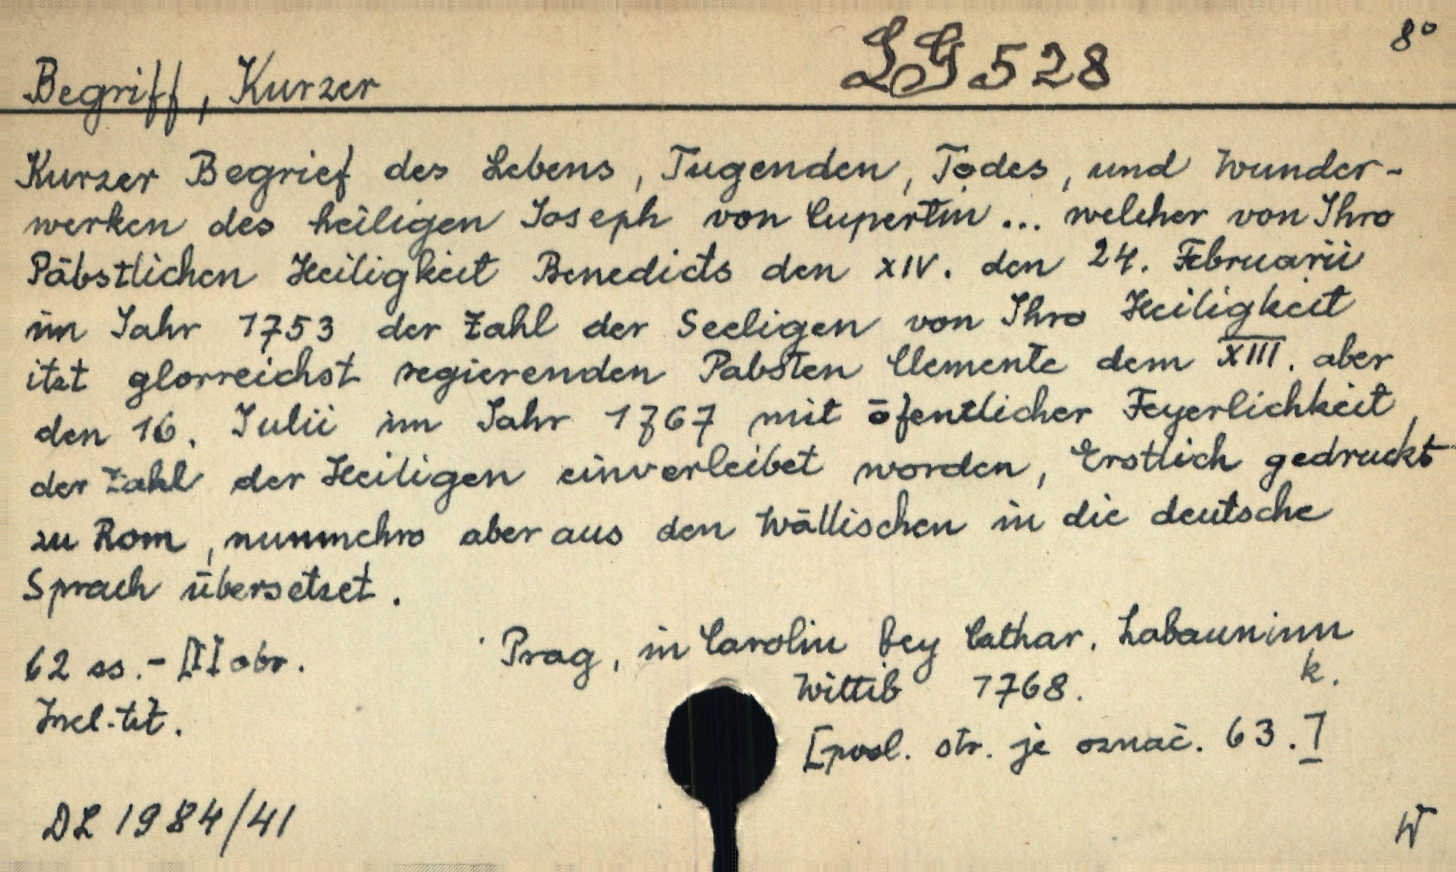 LG 528
8°
Begriff, Kurzer
Kurzer Begrief des Lebens, Tugenden, Todes, und Wunder-
werken des heiligen Joseph von Cupertin ... welcher von Ihro
Päbstlichen Heiligkeit Benedicts den XIV. den 24. Februarii
im Jahr 1753 der Zahl der Seeligen von Ihro Heiligkeit
itzt glorreichst regierenden Pabsten Clemente dem XIII. aber
den 16. Julii im Jahr 1767 mit öfentlicher Feyerlichkeit,
der Zahl der Heiligen einverleibet worden, Erstlich gedruckt
zu Rom, nunmehro aber aus den Wällischen in die deutsche
Sprach übersetzet.
62 ss. - [I] obr. Prag, in Carolin bey Cathar. Labauninn
Wittib 1768. k.
Incl. tit.
[posl. str. je označ. 63.]
DL 1984/41
W